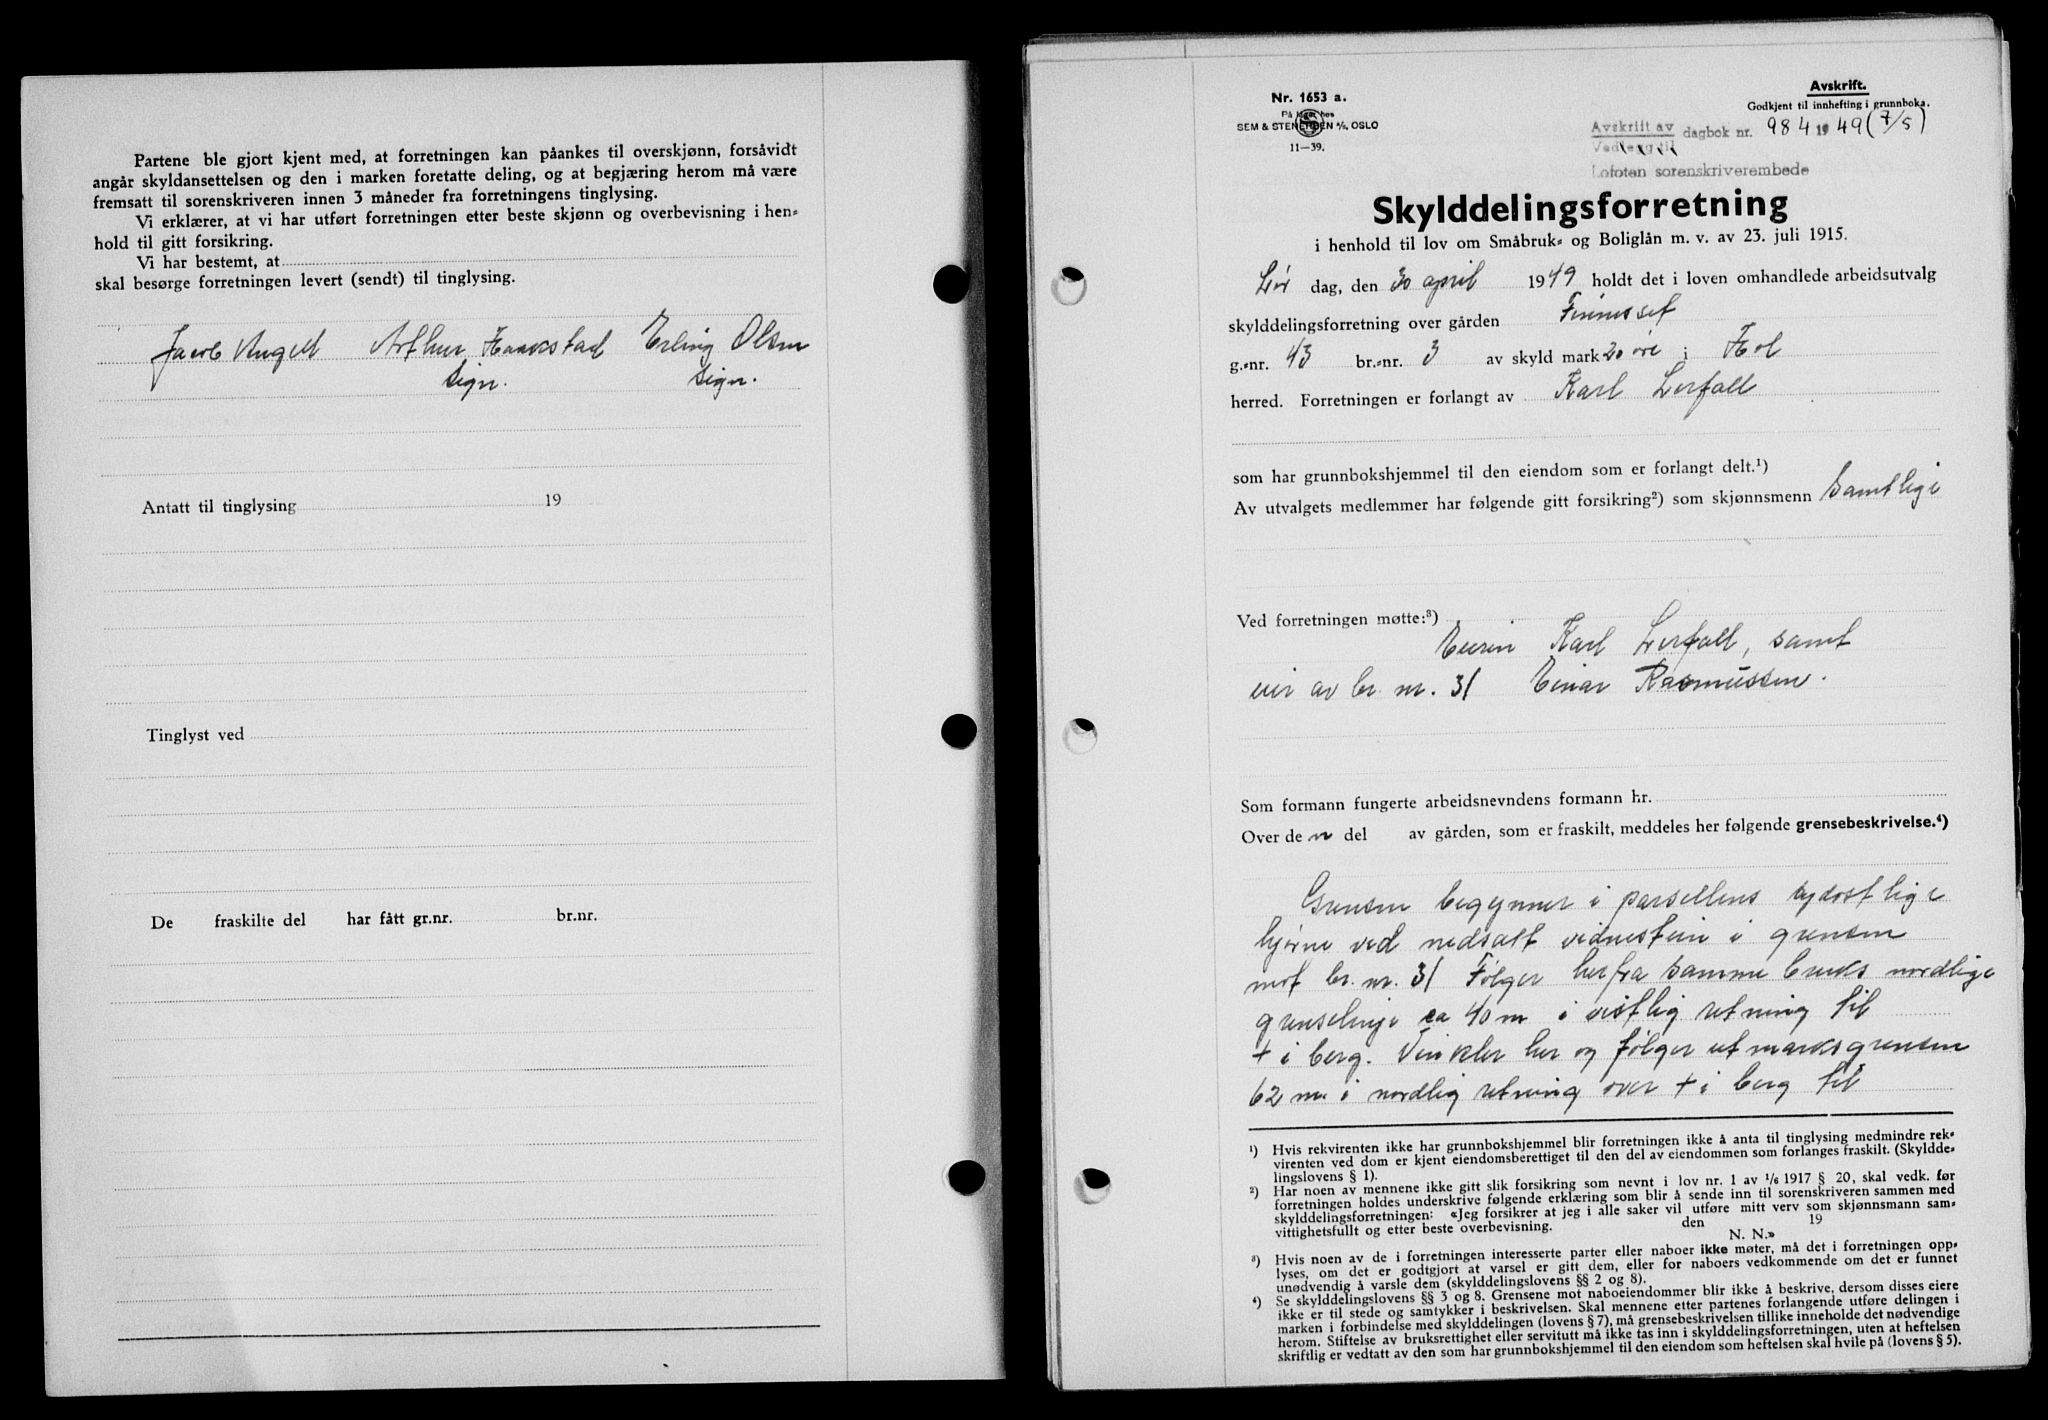 Partene ble gjort kjent med, at forretningen kan påankes til overskjønn, forsåvidt
angår skyldansettelsen og den i marken foretatte deling, og at begjæring herom må være
fremsatt til sorenskriveren innen 3 måneder fra forretningens tinglysing.
Vi erklærer, at vi har utført forretningen etter beste skjønn og overbevisning i hen-
hold til gitt forsikring.
Vi har bestemt, at
skal besørge forretningen levert (sendt) til tinglysing.
Jacob Angell Arthur Haakstad Erling Olsen
sign. sign.
Antatt til tinglysing 19
Tinglyst ved
De fraskilte del har fått gr.nr. br.nr.
Nr. 1653 a.
På lager hos
SEM & STENERSEN A/S, OSLO
11—39.
Avskrift.
Godkjent til innhefting i grunnboka.
Avskrift av dagbok nr. 984 1949 (7/5)
Vedlegg til
Lofoten sorenskriverembede
Skylddelingsforretning
i henhold til lov om Småbruk- og Boliglån m. v. av 23. juli 1915.
Lør dag, den 30 april 1949 holdt det i loven omhandlede arbeidsutvalg
skylddelingsforretning over gården Finnesset
g.-nr. 43 br.-nr. 3 av skyld mark 20 øre i Hol
herred. Forretningen er forlangt av Karl Lerfall
som har grunnbokshjemmel til den eiendom som er forlangt delt.¹)
Av utvalgets medlemmer har følgende gitt forsikring²) som skjønnsmenn Samtlige
Ved forretningen møtte:³)
Eieren Karl Lerfall, samt
eier av br. nr. 31 Einar Rasmussen.
Som formann fungerte arbeidsnevndens formann hr.
Over de n del av gården, som er fraskilt, meddeles her følgende grensebeskrivelse.⁴)
Grensen begynner i parsellens sydostlige
hjørne ved nedsatt vidnestein i grensen
mot br. nr. 31 Følger herfra samme bruks nordlige
grenselinje ca 40 m i vestlig retning til
+ i berg. Vinkler her og følger utmarksgrensen
62 m. i nordlig retning over + i berg til
¹) Hvis rekvirenten ikke har grunnbokshjemmel blir forretningen ikke å anta til tinglysing medmindre rek-
virenten ved dom er kjent eiendomsberettiget til den del av eiendommen som forlanges fraskilt. (Skyldde-
lingslovens § 1).
²) Har noen av mennene ikke gitt slik forsikring som nevnt i lov nr. 1 av 1/6 1917 § 20, skal vedk. før
forretningen holdes underskrive følgende erklæring som blir å sende inn til sorenskriveren sammen med
skylddelingsforretningen: «Jeg forsikrer at jeg i alle saker vil utføre mitt verv som skjønnsmann sam-
vittighetsfullt og etter beste overbevisning. den 19
N. N.»
³) Hvis noen av de i forretningen interesserte parter eller naboer ikke møter, må det i forretningen opp-
lyses, om det er godtgjort at varsel er gitt dem, eller for naboers vedkommende om det er funnet
unødvendig å varsle dem (skylddelingslovens §§ 2 og 8).
⁴) Se skylddelingslovens §§ 3 og 8. Grensene mot naboeiendommer blir ikke å beskrive, dersom disses eiere
ikke er til stede og samtykker i beskrivelsen. Skal mennene etter partenes forlangende utføre delingen i
marken i forbindelse med skylddelingen (lovens § 7), må grensebeskrivelsen tillike inneholde det nødvendige
herom. Stiftelse av bruksrettighet eller servitutt må ikke tas inn i skylddelingsforretningen, uten at heftelsen
skriftlig er vedtatt av den som har grunnbokshjemmel til den eiendom som heftelsen skal hvile på (lovens § 5).